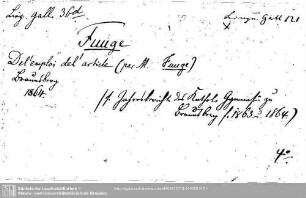 Ling. Gall. 36d
Lingu. Gall 121
Funge
De l'emploi de l'article (par M. Funge)
Braunsberg
1864.
(4. Jahresbericht des Kathol. Gymnasii zu
Braunsberg (f. 1863-1864.)
4°
Sächsische Landesbibliothek -
Staats- und Universitätsbibliothek Dresden